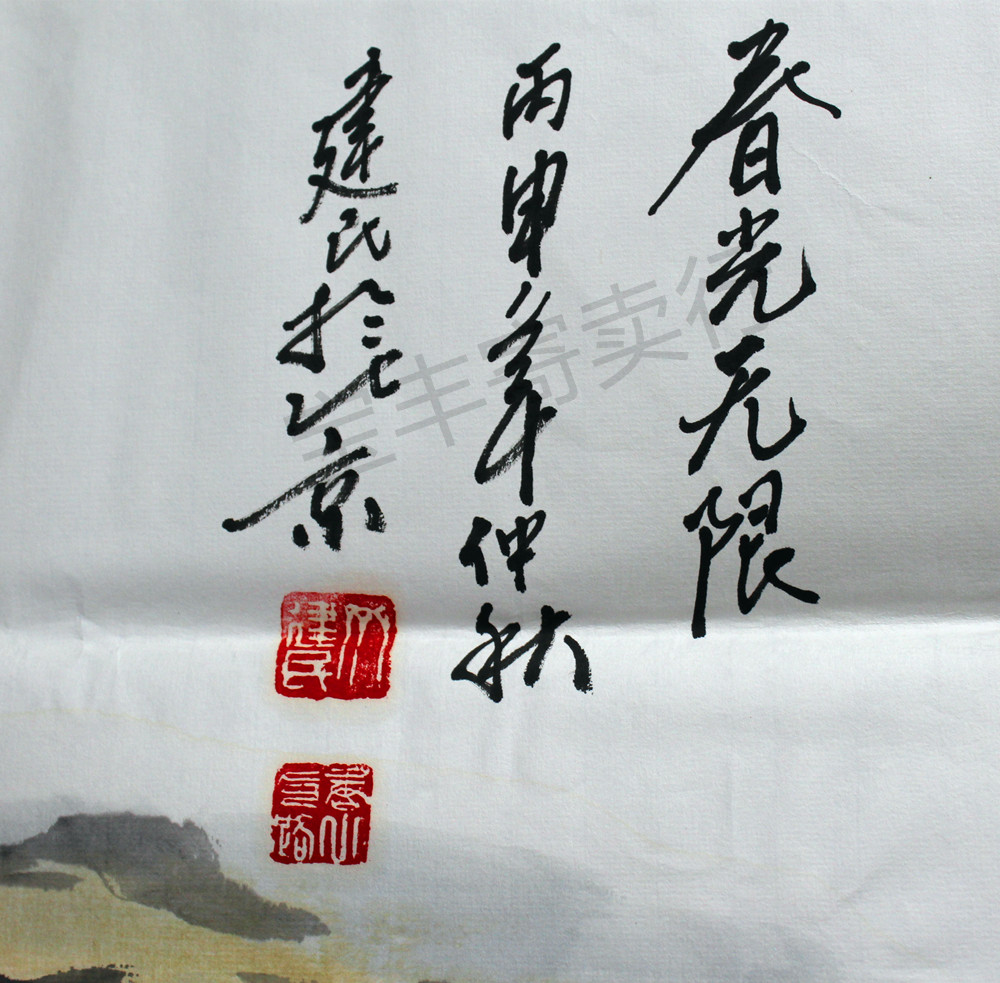 春光无限
丙申年仲秋
建民於北京
建民
宝丰寄卖行